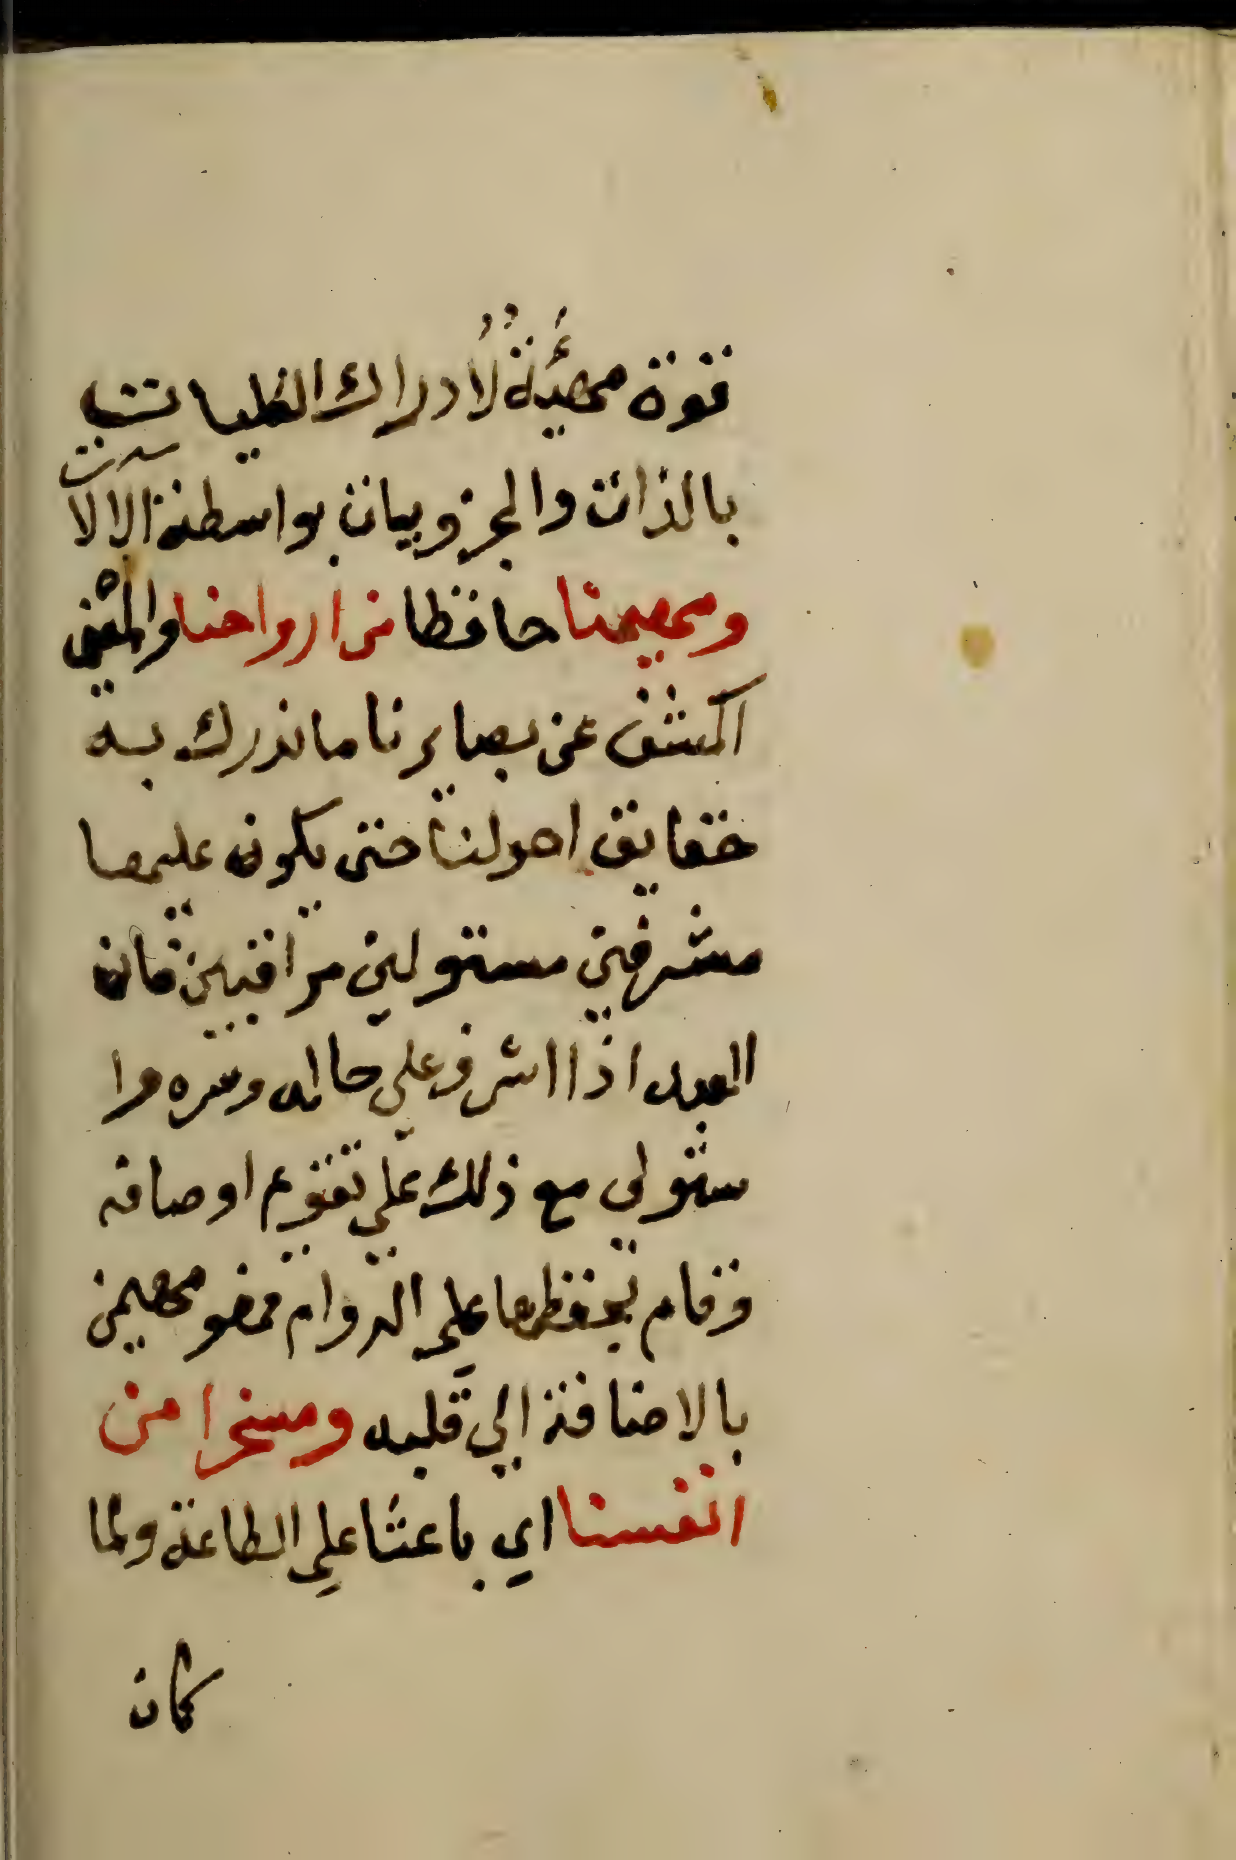 قوة مهيئة لادراك الكليات
بالذات والجزويات بواسطة الالات
ومهيمنا حافظا من ارواحنا والمعني
اكشف عن بصايرنا ما ندرك به
حقايق احولنا حتي يكون عليها
مشرفين مستولين مراقبين فان
العبد اذا اشرف علي حاله وسره وا
ستولي مع ذلك علي تقويم اوصافه
وقام بحفظها علي الدوام فهو مهيمن
بالاضافة الي قلبه ومسخرا من
انفسنا اي باعثا علي الطاعة ولما
كان